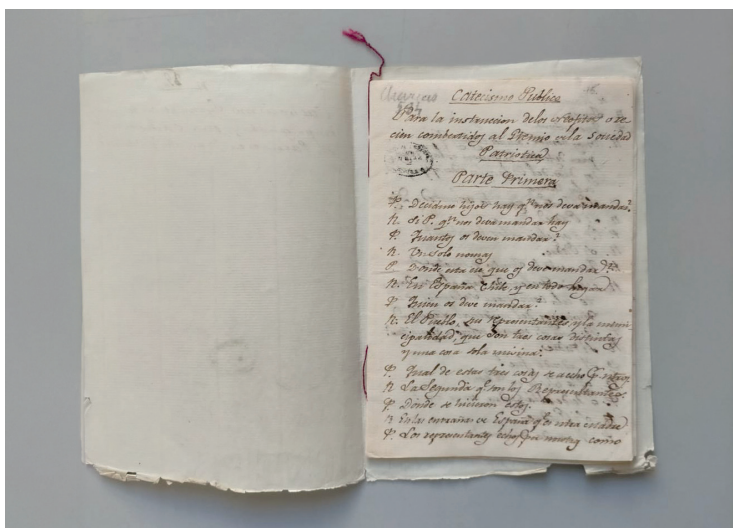 Catecismo Publico
Para la instruccion de los Neofitos o re
cien combertidos al Gremio de la Sociedad
Patriotica
Parte Primera
P. Decidme hijos hay qn. nos deve mandar?
R. Si P. qn. nos deve mandar hay
P. Quantos os deven mandar?
R. Un solo nomas
P. Donde esta ese que os deve mandar
R. En España Chile, y en todo lugar
P. Quien os deve mandar?
R. El Pueblo, sus representantes, y la muni
cipalidad, que son tres cosas distintas
y una cosa sola misma.
P. Qual de estas tres cosas se a echo
R. La Segunda qe. son los Representantes
P. Donde se hicieron estos.
R. En las entrañas de España qe. es ntra.
P. Los representantes echos como